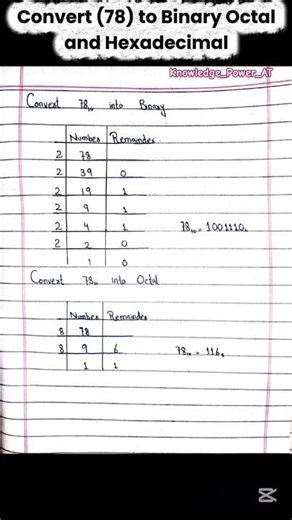 Convert (78) to Binary Octal
and Hexadecimal
Knowledge_Power_AT
Convert 78₁₀ into Binary
Number Remainder
2 78
2 39 0
2 19 1
2 9 1
2 4 1
2 2 0
1 0
78₁₀ = 1001110₂
Convert 78₁₀ into Octal
Number Remainder
8 78
8 9 6
1 1
78₁₀ = 116₈